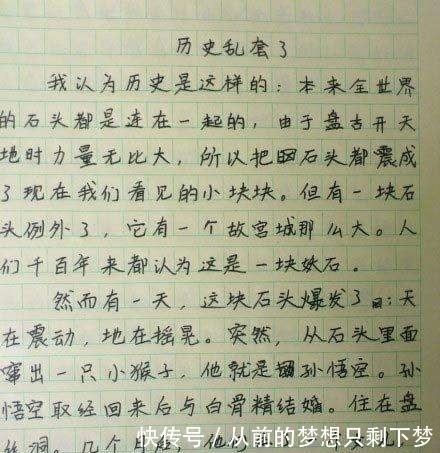 历史乱套了
我认为历史是这样的：本来全世界
的石头都是连在一起的，由于盘古开天
地时力量无比大，所以把石头都震成
了现在我们看见的小块块。但有一块石
头例外了，它有一个故宫城那么大。人
们千百年来都认为这是一块妖石。
然而有一天，这块石头爆发了：天
在震动，地在摇晃。突然，从石头里面
窜出一只小猴子，他就是孙悟空。孙
悟空取经回来后与白骨精结婚。住在盘
丝洞。几个月
快传号/从前的梦想只剩下梦